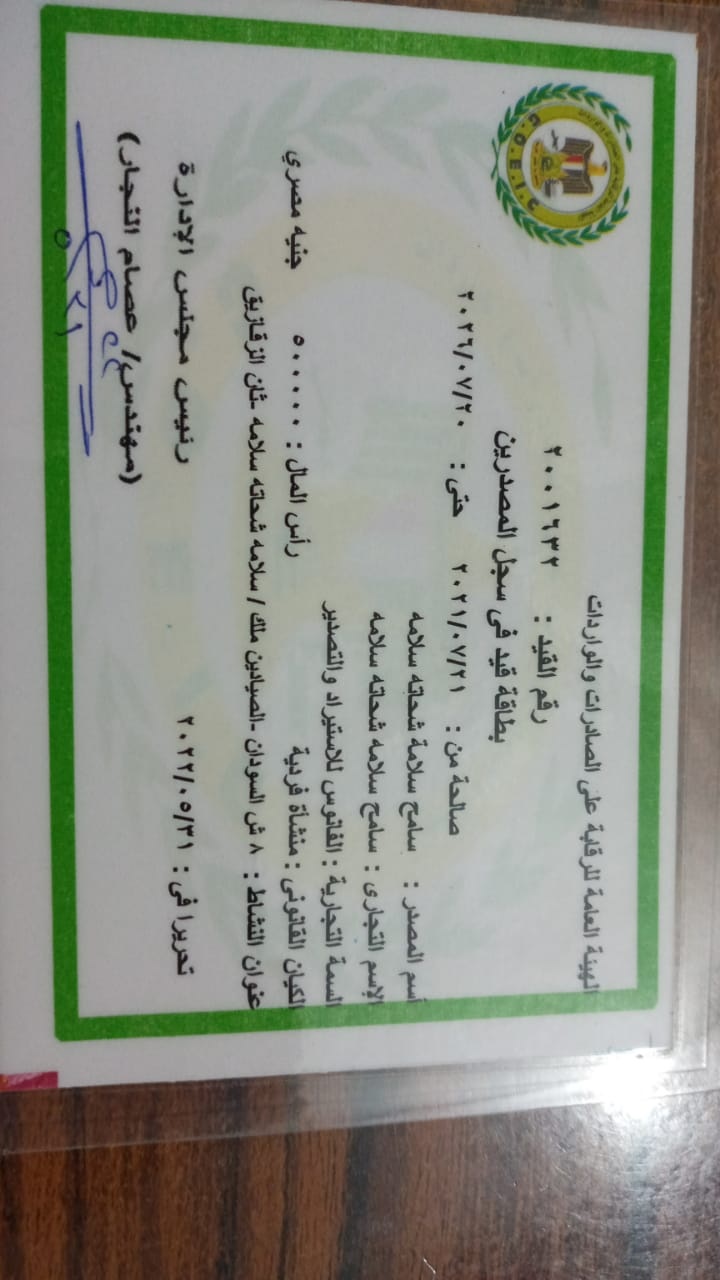 الهيئة العامة للرقابة على الصادرات والواردات
رقم القيد : ٢٠٠١٦٣٢
بطاقة قيد فى سجل المصدرين
صالحة من : ٢٠٢١/٠٧/٢١ حتى : ٢٠٢٦/٠٧/٢٠
أسم المصدر : سامح سلامة شحاته سلامه
الإسم التجارى : سامح سلامه شحاته سلامه
السمة التجارية : الفانوس للاستيراد والتصدير
الكيان القانونى : منشأة فردية رأس المال : ٥٠٠٠٠٠ جنيه مصري
عنوان النشاط : ٨ ش السودان -الصيادين ملك / سلامه شحاته سلامه -ثان الزقازيق
تحريرا فى : ٢٠٢٢/٠٥/٣١
رئيس مجلس الإدارة
(مهندس/ عصام النجار)
G.O.E.I.C